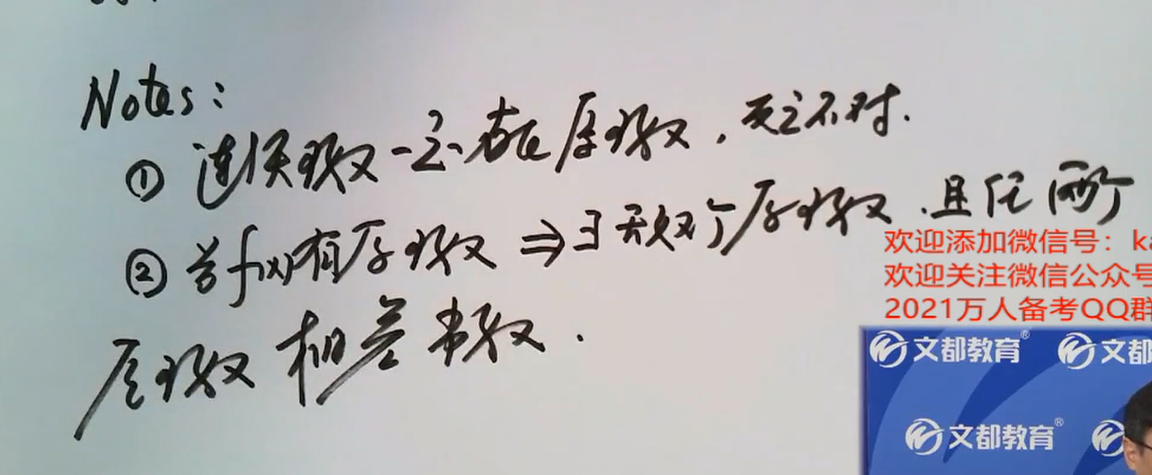 Notes:
① 连续函数一定存在原函数,反之不对.
② 若f(x)有原函数 ⇒ ∃无数个原函数.且任两个
原函数相差常数.
欢迎添加微信号:ka
欢迎关注微信公众号
2021万人备考QQ群
文都教育® 文都
文都教育®